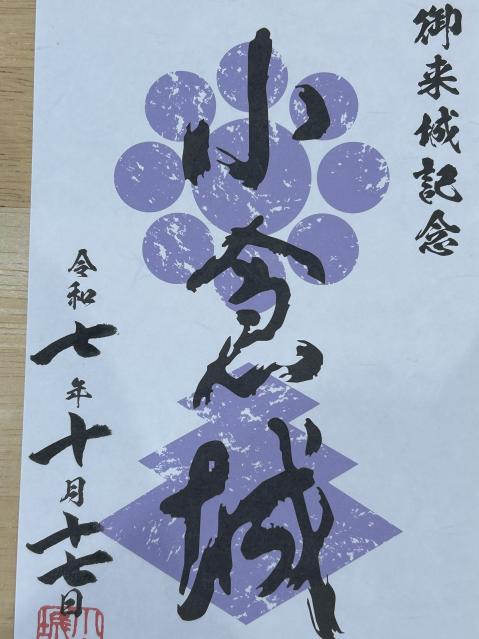 御来城記念
小倉城
令和七年十月十七日